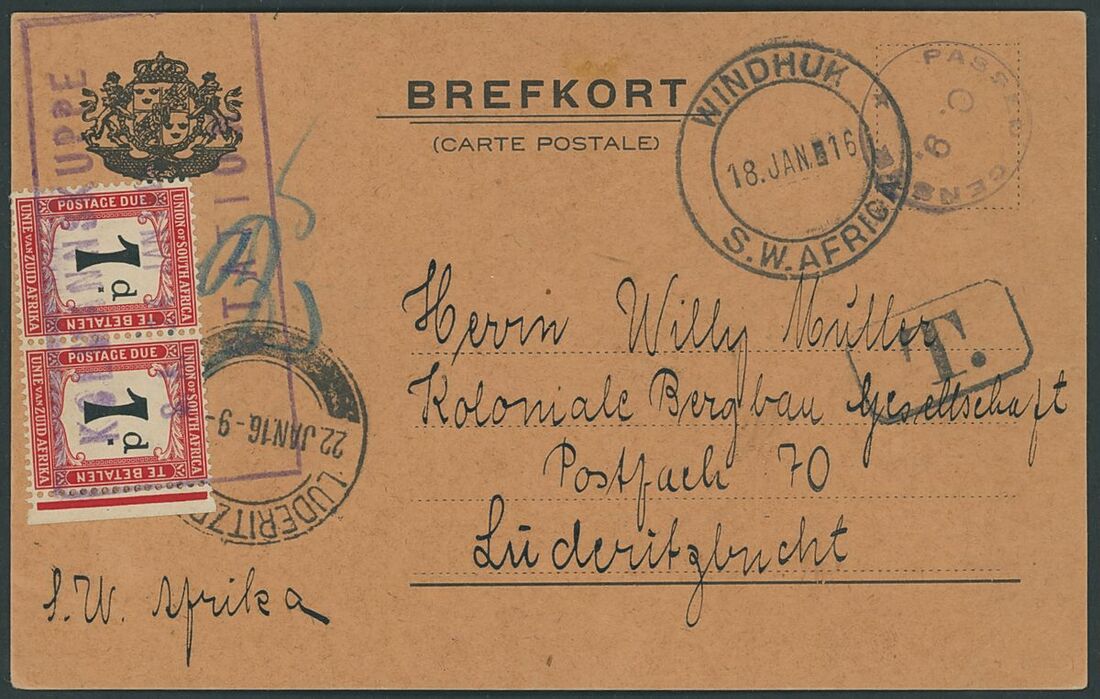 BREFKORT
(CARTE POSTALE)
WINDHUK
18. JAN. 16
S.W. AFRICA
PASSED CENS
C. 9.
T.
POSTAGE DUE
UNION OF SOUTH AFRICA
UNIE VAN ZUID AFRIKA
1d.
TE BETALEN
POSTAGE DUE
UNION OF SOUTH AFRICA
UNIE VAN ZUID AFRIKA
1d.
TE BETALEN
22 JAN 16 - 9 -
LÜDERITZ
Herrn Willy Müller
Koloniale Bergbau Gesellschaft
Postfach 70
Lüderitzbucht
S. W. Afrika